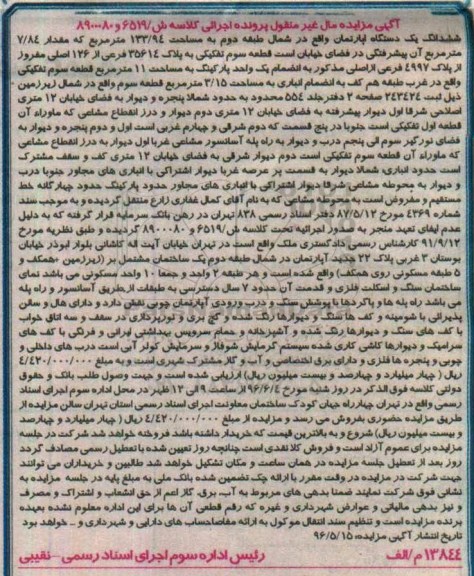 آگهی مزایده مال غیر منقول پرونده اجرائی کلاسه ش/۶۵۱۹ و ۸۹۰۰۰۸۰
ششدانگ یک دستگاه آپارتمان واقع در شمال طبقه دوم به مساحت ۱۳۳/۹۴ مترمربع که مقدار ۷/۸۴
مترمربع آن پیشرفتگی در فضای خیابان است قطعه سوم تفکیکی به پلاک ۳۵۶۱۴ فرعی از ۱۲۶ اصلی مفروز
از پلاک ۴۹۹۷ فرعی از اصلی مذکور به انضمام یک واحد پارکینگ به مساحت ۱۱ مترمربع قطعه سوم تفکیکی
واقع در غرب طبقه هم کف به انضمام انباری به مساحت ۳/۱۵ مترمربع قطعه سوم واقع در شمال زیرزمین
ذیل ثبت ۲۴۳۴۳۴ صفحه ۲ دفتر جلد ۵۵۴ محدود به حدود شمالا پنجره و دیوار به فضای خیابان ۱۲ متری
اصلاحی شرقا اول دیوار پیشرفته به فضای خیابان ۱۲ متری دوم دیوار و درز انقطاع مشاعی که ماوراء آن
قطعه اول تفکیکی است جنوبا در پنج قسمت که دوم شرقی و چهارم غربی است اول و دوم پنجره و دیوار به
فضای نورگیر سوم الی پنجم درب و دیوار به راه پله آسانسور مشاعی غربا اول دیوار به درز انقطاع مشاعی
که ماوراء آن قطعه سوم تفکیکی است دوم دیوار شرقی به فضای خیابان ۱۲ متری کف و سقف مشترک
است حدود انباری، شمالا دیوار به قسمت پر عرصه غربا دیوار اشتراکی با انباری های مجاور جنوبا درب
و دیوار به محوطه مشاعی شرقا دیوار اشتراکی با انباری های مجاور حدود پارکینگ حدود چهارگانه خط
مستقیم و مفروض است به محوطه مشاعی که به نام آقای کمال غفاری زارع منتقل گردیده و به موجب سند
شماره ۴۳۶۹ مورخ ۸۷/۵/۱۲ دفتر اسناد رسمی ۸۳۸ تهران در رهن بانک سرمایه قرار گرفته که به دلیل
عدم ایفای تعهد منجر به صدور اجرائیه تحت کلاسه ش/۶۵۱۹ و ۸۹۰۰۰۸۰ گردیده و طبق نظریه مورخ
۹۱/۹/۱۲ کارشناس رسمی دادگستری ملک واقع است در تهران خیابان آیت اله کاشانی بلوار ابوذر خیابان
بوستان ۳ غربی پلاک ۲۲ جدید آپارتمان در شمال طبقه دوم یک ساختمان مشتمل بر (زیرزمین +همکف و
۵ طبقه مسکونی روی همکف) واقع شده است و هر طبقه ۲ واحد و جمعا ۱۰ واحد مسکونی می باشد نمای
ساختمان سنگ و اسکلت فلزی و قدمت آن حدود ۷ سال دسترسی به طبقات از طریق آسانسور و راه پله
می باشد راه پله ها و پاگردها با پوشش سنگ و درب ورودی آپارتمان چوبی نقش دارد و دارای هال و سالن
پذیرائی با شومینه و کف ها سنگ و دیوارها رنگ شده و گچ بری و نورپردازی در سقف و سه اتاق خواب
با کف های سنگ و دیوارها رنگ شده و آشپزخانه و حمام سرویس بهداشتی ایرانی و فرنگی با کف های
سرامیک و دیوارها کاشی کاری شده سیستم گرمایش شوفاژ و سرمایش کولر آبی است درب های داخلی و
چوبی و پنجره ها فلزی و دارای برق اختصاصی و آب و گاز مشترک شهری است و به مبلغ ۴/۴۲۰/۰۰۰/۰۰۰
ریال (چهار میلیارد و چهارصد و بیست میلیون ریال) ارزیابی شده است و جهت وصول طلب بانک و حقوق
دولتی کلاسه فوق الذکر در روز شنبه مورخ ۹۶/۶/۴ از ساعت ۹ الی ۱۲ ظهر در محل اداره سوم اجرای اسناد
رسمی واقع در تهران چهارراه جهان کودک ساختمان معاونت اجرای اسناد رسمی استان تهران سالن مزایده از
طریق مزایده حضوری بفروش می رسد و مزایده از مبلغ ۴/۴۲۰/۰۰۰/۰۰۰ ریال (چهار میلیارد و چهارصد
و بیست میلیون ریال) شروع و به بالاترین قیمت که خریدار داشته باشد فروخته خواهد شد شرکت در جلسه
مزایده برای عموم آزاد است و فروش کلا نقدی است چنانچه روز تعیین شده با تعطیل رسمی مصادف گردد
روز بعد از تعطیل جلسه مزایده در همان ساعت و مکان تشکیل خواهد شد طالبین و خریداران می توانند
جهت شرکت در مزایده در وقت مقرر با ارائه چک تضمین شده بانک ملی به مبلغ پایه در جلسه مزایده به
نشانی فوق شرکت نمایند ضمنا بدهی های مربوط به آب، برق، گاز اعم از حق انشعاب و اشتراک و مصرف
و نیز بدهی مالیاتی و عوارض شهرداری و غیره که رقم قطعی آن ها برای این اداره معلوم نشده بعهده
برنده مزایده است و تنظیم سند انتقال موکول به ارائه مفاصاحساب های دارایی و شهرداری و ... خواهد بود
تاریخ انتشار آگهی مزایده: ۹۶/۵/۱۵
۱۳۸۴۴ م/الف رئیس اداره سوم اجرای اسناد رسمی - نقیبی